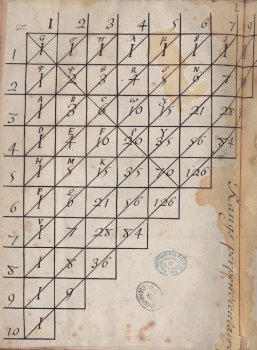 Z 1 2 3 4 5 6 7
G σ π λ μ
1 1 1 1 1 1 1 1
φ ψ θ R S N
2 1 2 3 4 5 6 7
A B C ω ξ
3 1 3 6 10 15 21 28
D E F ρ Y
4 1 4 10 20 35 56 84
H M K
5 1 5 15 35 70 126
P Q
6 1 6 21 56 126
V
7 1 7 28 84
8 1 8 36
9 1 9
10 1
Rangs perpendiculaires